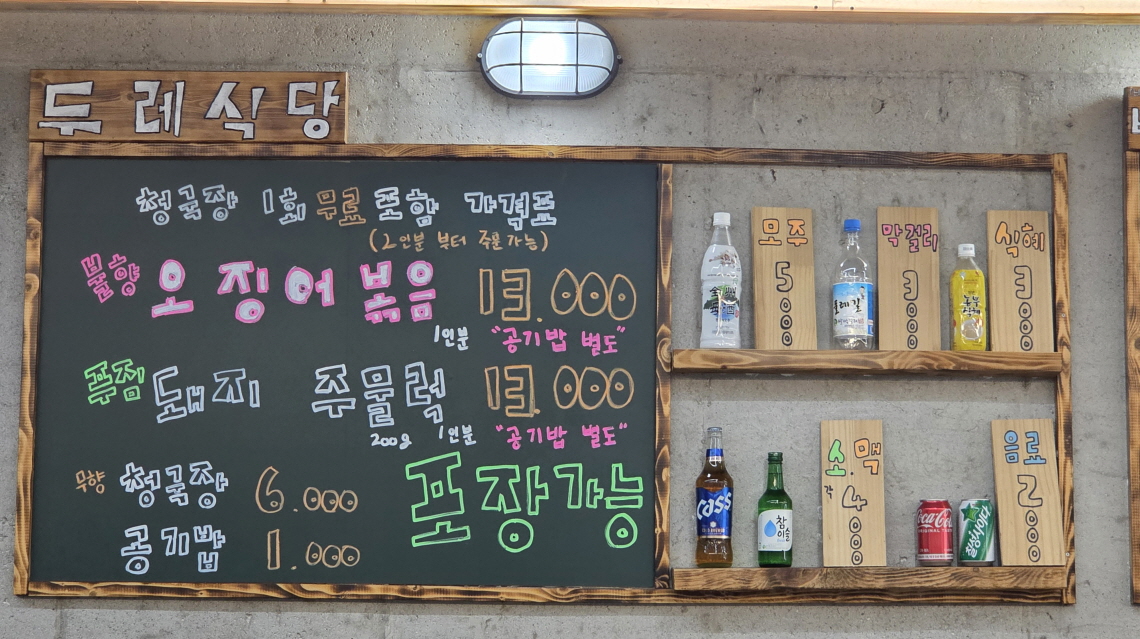 두레식당
청국장 1회 무료 포함 가격표
(2인분 부터 주문가능)
불향 오징어 볶음 13.000
1인분 "공기밥 별도"
푸짐 돼지 주물럭 13.000
200g 1인분 "공기밥 별도"
무향 청국장 6.000
공기밥 1.000
포장가능
모주 5000
막걸리 3000
식혜 3000
둘레길
Cass
참이슬
소.맥 각 4000
Coca-Cola
칠성사이다
음료 2000